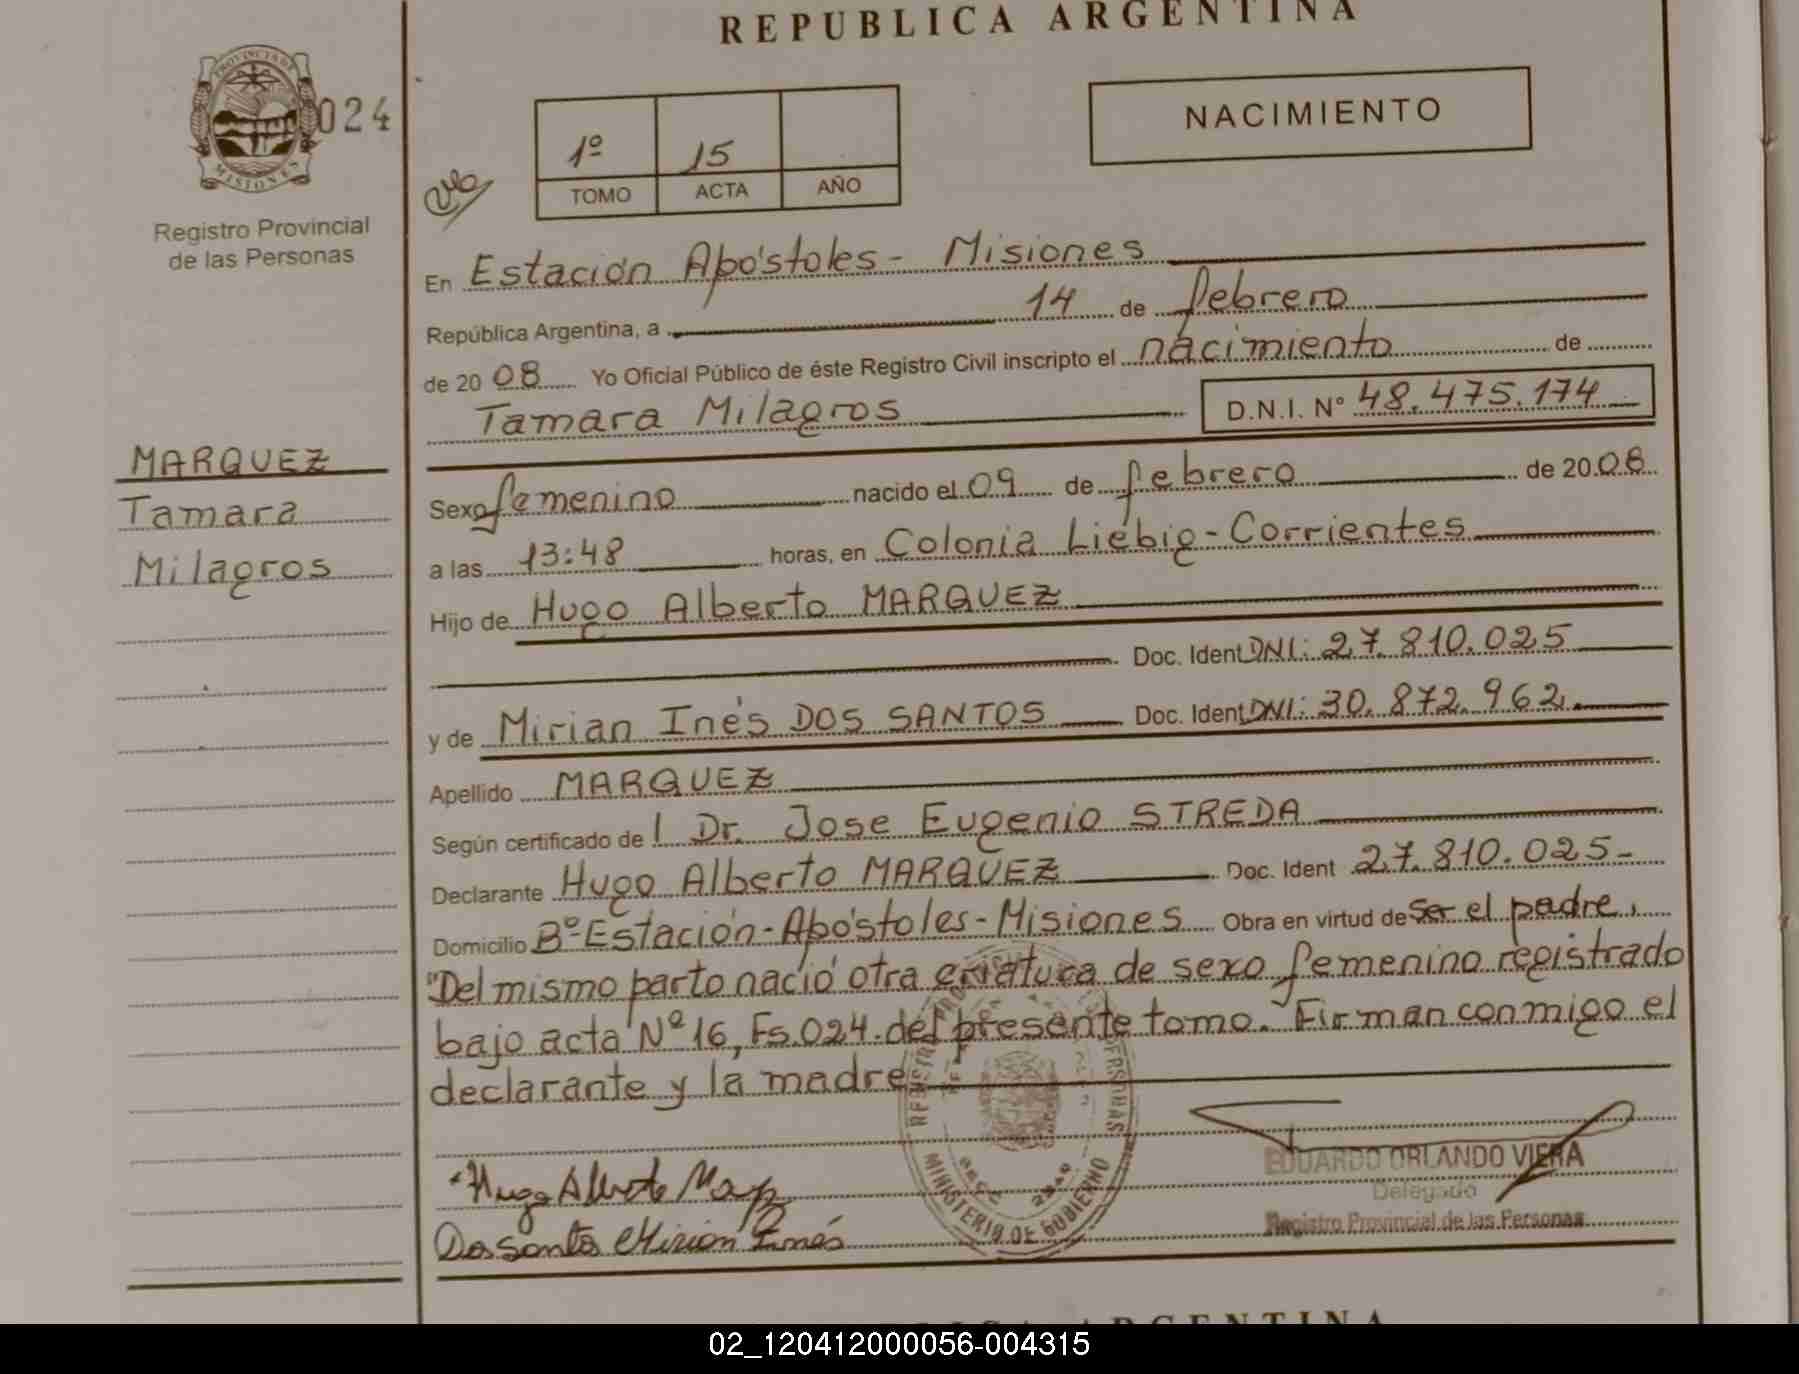 REPUBLICA ARGENTINA
PROVINCIA DE
MISIONES
024
Registro Provincial
de las Personas
NACIMIENTO
1º 15
TOMO ACTA AÑO
En Estación Apóstoles - Misiones
República Argentina, a 14 de febrero
de 20 08 Yo Oficial Público de éste Registro Civil inscripto el nacimiento de
Tamara Milagros D.N.I. Nº 48.475.174
MARQUEZ
Tamara
Milagros
Sexo femenino nacido el 09 de febrero de 20 08
a las 13:48 horas, en Colonia Liebig - Corrientes
Hijo de Hugo Alberto MARQUEZ
Doc. Ident DNI: 27.810.025
y de Mirian Inés DOS SANTOS Doc. Ident DNI: 30.872.962.
Apellido MARQUEZ
Según certificado de l Dr. Jose Eugenio STREDA
Declarante Hugo Alberto MARQUEZ Doc. Ident 27.810.025-
Domicilio Bº Estación - Apóstoles - Misiones Obra en virtud de ser el padre.
"Del mismo parto nació otra criatura de sexo femenino registrado
bajo acta Nº 16, Fs. 024. del presente tomo." Firman conmigo el
declarante y la madre
Hugo Alberto
Dos Santos Mirian Inés
MINISTERIO DE GOBIERNO
EDUARDO ORLANDO VIERA
Delegado
Registro Provincial de las Personas
REPUBLICA ARGENTINA
02_120412000056-004315